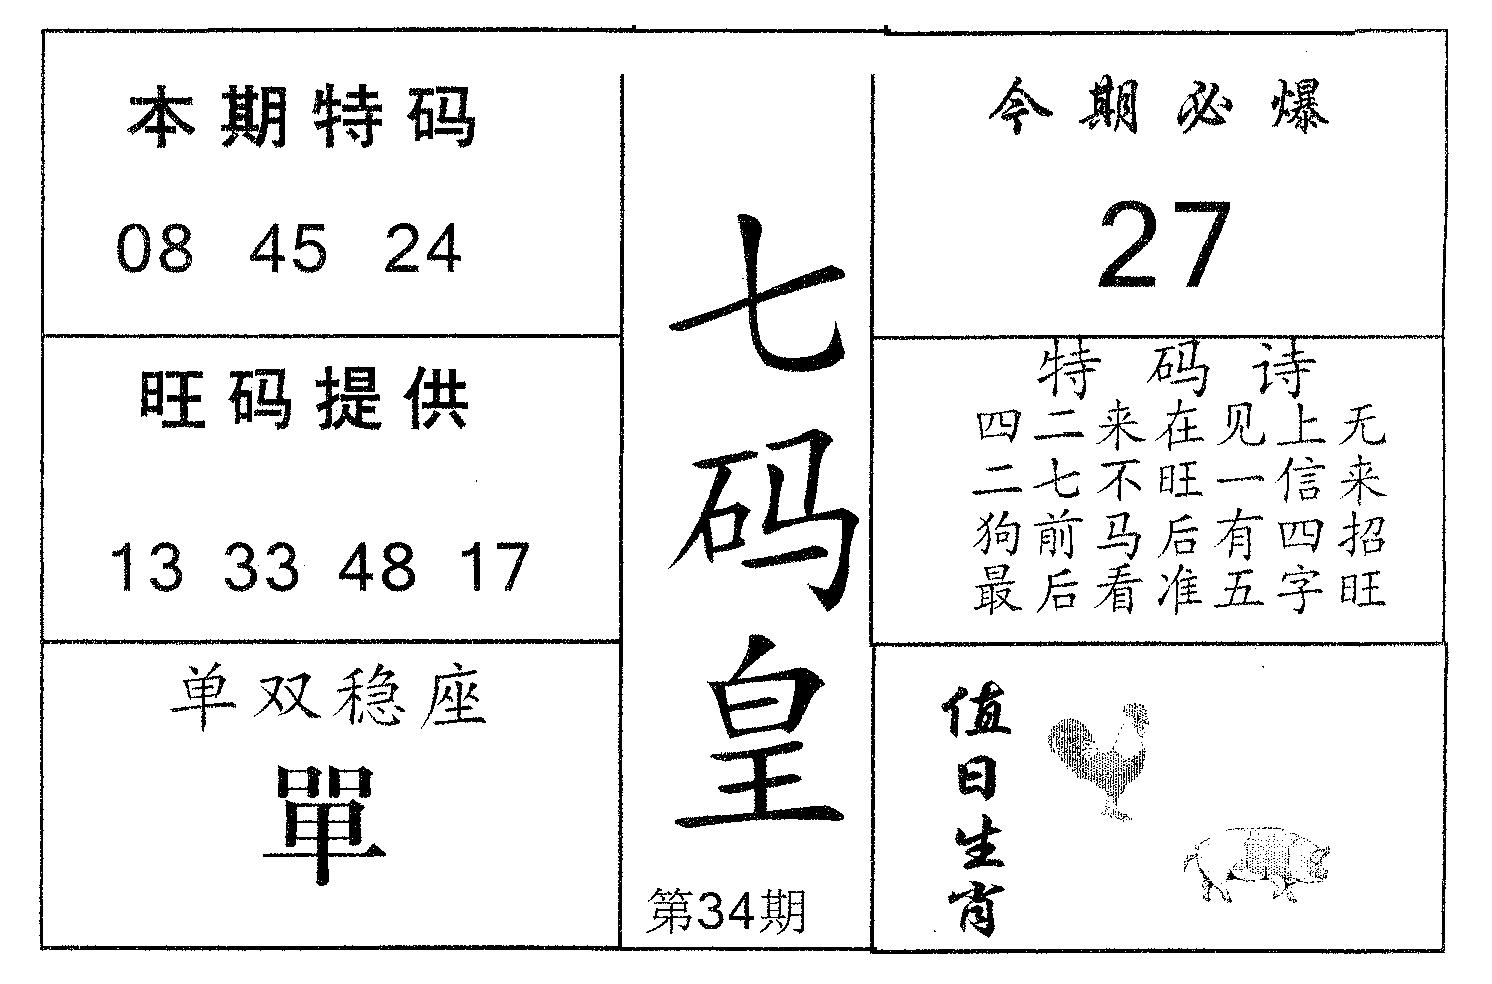 本期特码
08 45 24
旺码提供
13 33 48 17
单双稳座
單
七码皇
第34期
今期必爆
27
特码诗
四二来在见上无
二七不旺一信来
狗前马后有四招
最后看准五字旺
值日生肖